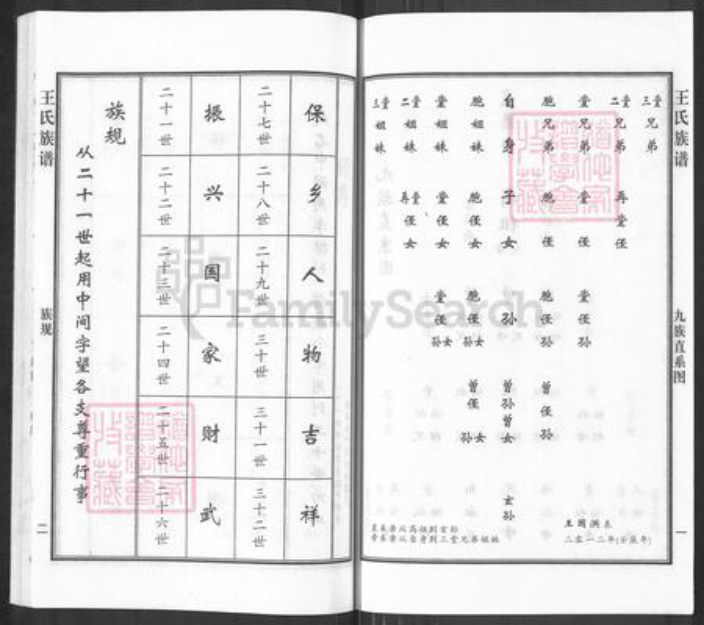 王氏族谱
九族直系图
一
三堂兄弟
二堂兄弟
再堂侄
堂兄弟
堂侄
堂侄孙
胞兄弟
胞侄
胞侄孙
曾侄孙
自身
子女
孙
曾孙曾女
玄孙
胞姐妹
胞侄女
胞侄孙女
曾侄孙女
堂姐妹
堂侄女
堂侄孙女
二堂姐妹
再堂侄女
三堂姐妹
二零一二年(壬辰年)
保乡人物吉祥
二十七世
二十八世
二十九世
三十世
三十一世
三十二世
振兴国家财武
二十一世
二十二世
二十三世
二十四世
二十五世
二十六世
族规
从二十一世起用中间字望各支尊重行事
王氏族谱
族规
二
FamilySearch